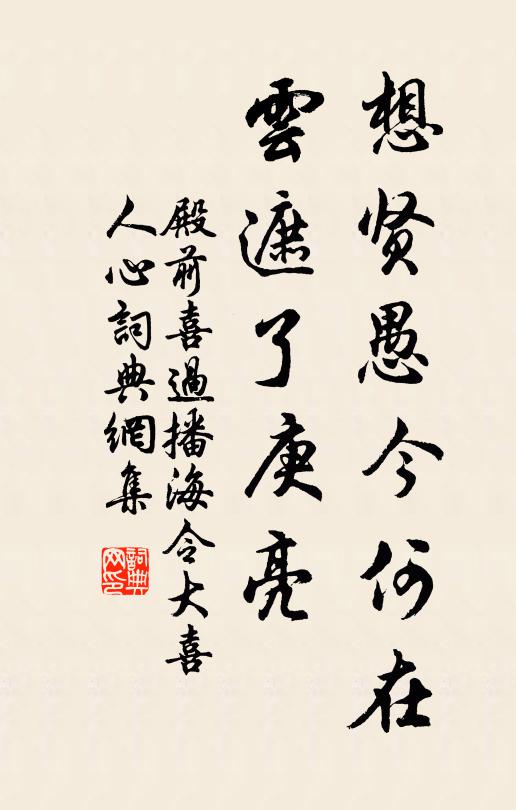 想贤愚今何在
雲遮了庾亮
殿前喜過播海令大喜
人心詞典網集
詞典网印